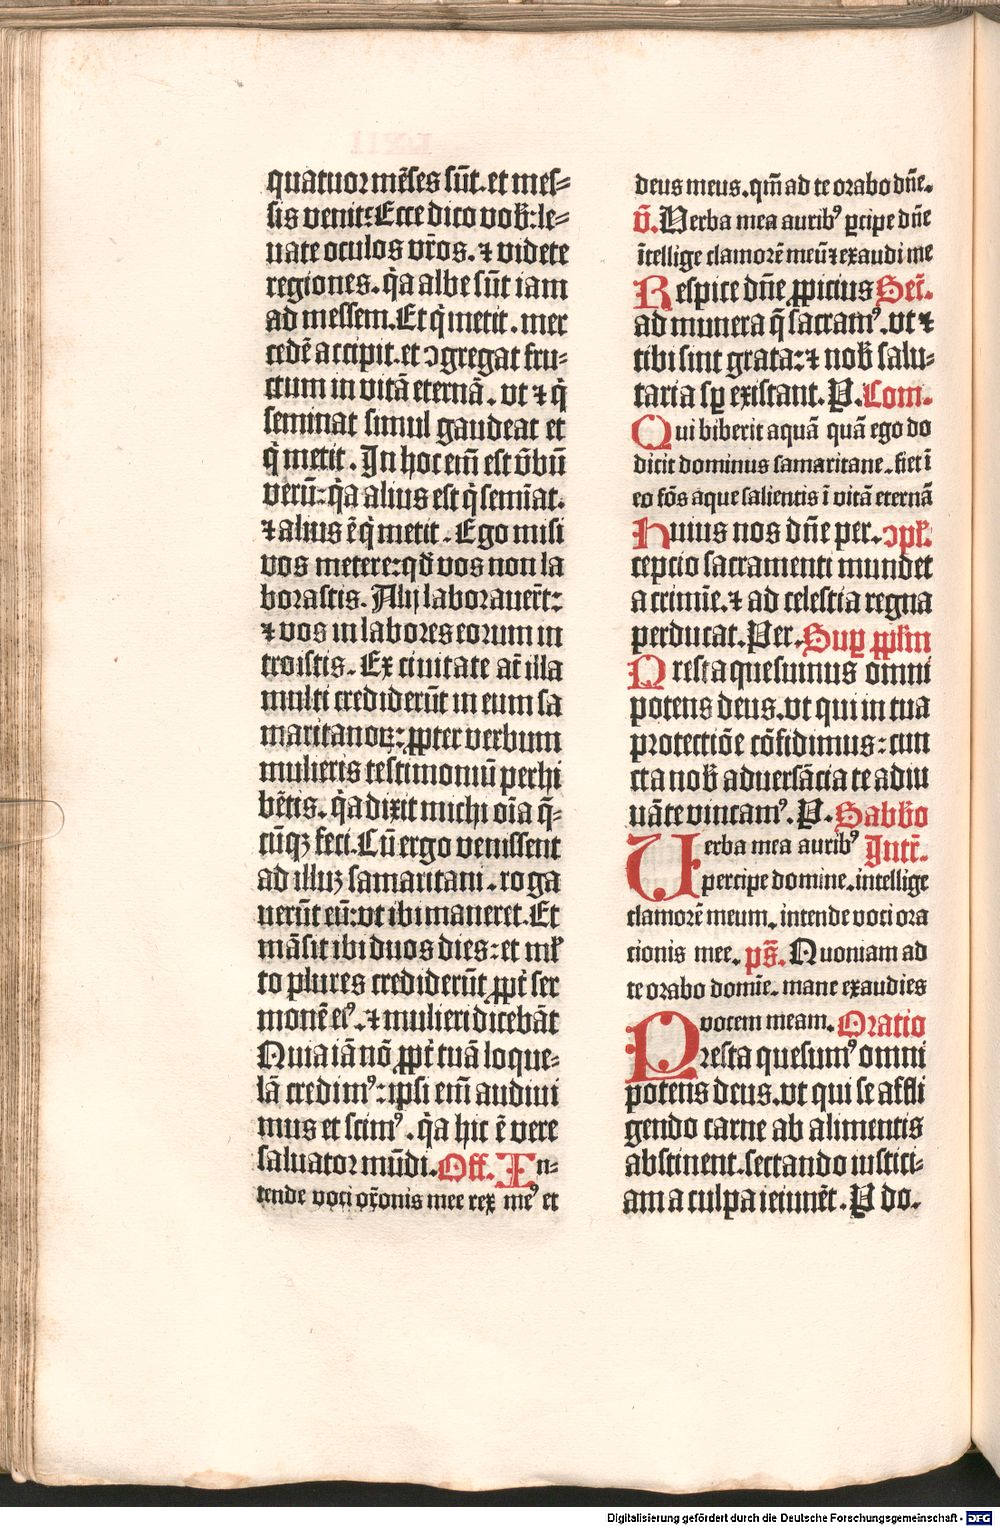 quatuor mēses sūt. et mes⸗
sis venit: Ecce dico vob̄: le⸗
uate oculos vr̄os. ⁊ videte
regiones. q̇a albe sūt iam
ad messem. Et q̇ metit. mer
cedē accipit. et ɔgregat fru⸗
ctum in vitā eternā. vt ⁊ q̇
seminat simul gaudeat et
q̇ metit. In hoc em̄ est v̄bū
verū: q̇a alius est q̇ semīat.
⁊ alius ē q̇ metit. Ego misi
vos metere: qd̄ vos non la
borastis. Alij laborauer̄t:
⁊ vos in labores eorum in
troistis. Ex ciuitate at̄ illa
multi crediderūt in eum sa
maritanoꝝ: ꝓpter verbum
mulieris testimoniū perhi
bētis. q̇a dixit michi oīa q̄⸗
cūqꝫ feci. Cū ergo venissent
ad illuꝫ samaritani. roga
uerūt eū: vt ibi maneret. Et
māsit ibi duos dies: et ml̄
to plures crediderūt ꝓpt̄ ser
monē eiꝰ. ⁊ mulieri dicebāt
Quia iā nō ꝓpt̄ tuā loque⸗
lā credimꝰ: ipsi em̄ audiui
mus et scimꝰ. q̇a hic ē vere
saluator mūdi. Off. In⸗
tende voci or̄onis mee rex meꝰ et
deus meus. qm̄ ad te orabo dn̄e.
v̄. Verba mea auribꝰ ꝑcipe dn̄e
ītellige clamorē meū ⁊ exaudi me
Respice dn̄e ꝓpicius Secr̄.
ad munera q̄ sacramꝰ. vt ⁊
tibi sint grata: ⁊ nob̄ salu⸗
taria sꝑ existant. P. Com.
Qui biberit aquā quā ego do
dicit dominus samaritane. fiet ī
eo fōs aque salientis ī vitā eternā
Huius nos dn̄e per. ɔpl̄.
cepcio sacramenti mundet
a crimīe. ⁊ ad celestia regna
perducat. Per. Suꝑ ppl̄m
Presta quesumus omni
potens deus. vt qui in tua
protectiōe cōfidimus: cun
cta nob̄ aduersācia te adiu
uāte vincamꝰ. P. Sabb̄o
Verba mea auribꝰ Intr̄.
percipe domine. intellige
clamorē meum. intende voci ora
cionis mee. ps̄. Quoniam ad
te orabo domīe. mane exaudies
vocem meam. Oratio
Presta quesumꝰ omni
potens deus. vt qui se affli
gendo carne ab alimentis
abstinent. sectando iustici⸗
am a culpa ieiunēt. P do.
Digitalisierung gefördert durch die Deutsche Forschungsgemeinschaft - DFG